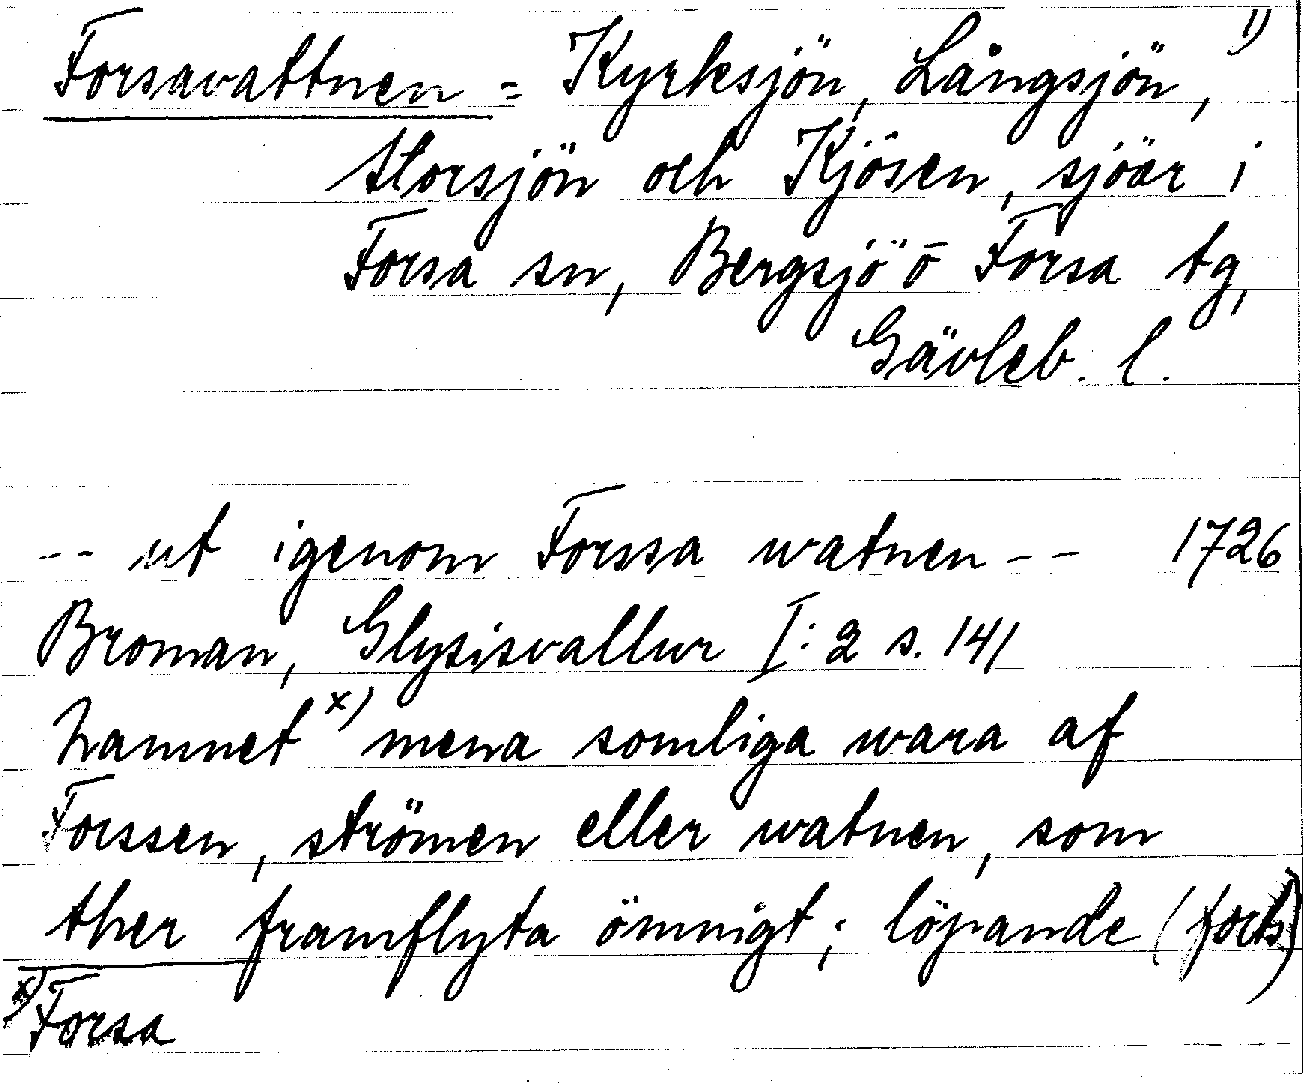 Forsavattnen = Kyrksjön, Långsjön, 1)
Storsjön och Kjösen, sjöar i
Forsa sn, Bergsjö o Forsa tg,
Gävleb. l.
-- ut igenom Forssa watnen -- 1726
Broman, Glysisvallur I:2 s. 141
Namnet x) mena somliga wara af
Forssen, strömen eller watnen, som
ther framflyta ömnigt; löpande (forts)
x) Forsa